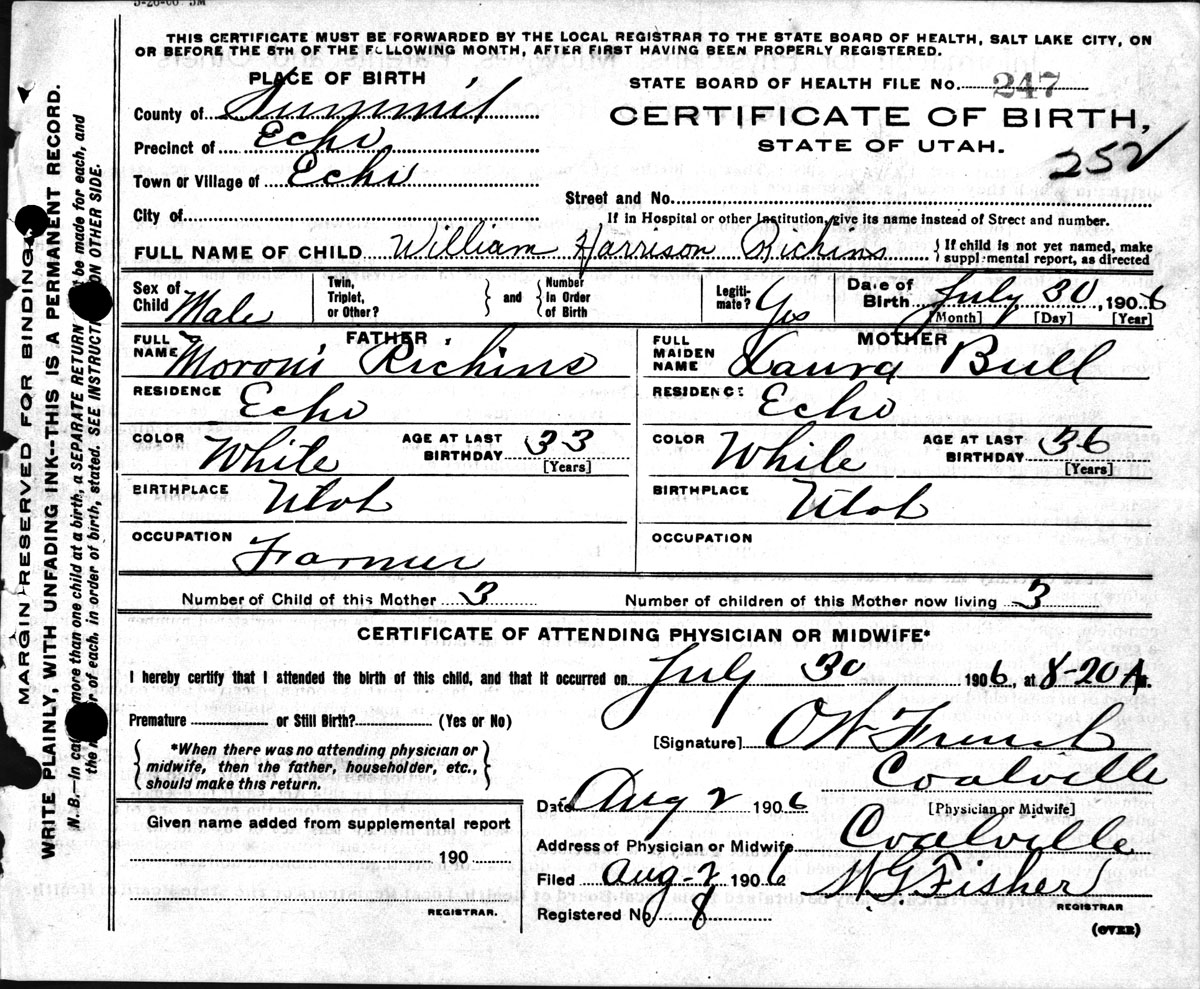 THIS CERTIFICATE MUST BE FORWARDED BY THE LOCAL REGISTRAR TO THE STATE BOARD OF HEALTH, SALT LAKE CITY, ON
OR BEFORE THE 5TH OF THE FOLLOWING MONTH, AFTER FIRST HAVING BEEN PROPERLY REGISTERED.
PLACE OF BIRTH
County of Summit
Precinct of Echo
Town or Village of Echo
City of
STATE BOARD OF HEALTH FILE No. 247
CERTIFICATE OF BIRTH,
STATE OF UTAH.
252
Street and No.
If in Hospital or other Institution, give its name instead of Street and number.
FULL NAME OF CHILD William Harrison Richins { If child is not yet named, make
supplemental report, as directed
Sex of Child Male
Twin, Triplet, or Other? } and { Number in Order of Birth
Legitimate? Yes
Date of Birth July 30, 1906
[Month] [Day] [Year]
FATHER
FULL NAME Moroni Richins
RESIDENCE Echo
COLOR White AGE AT LAST BIRTHDAY 33
[Years]
BIRTHPLACE Utah
OCCUPATION Farmer
MOTHER
FULL MAIDEN NAME Laura Bull
RESIDENCE Echo
COLOR White AGE AT LAST BIRTHDAY 36
[Years]
BIRTHPLACE Utah
OCCUPATION
Number of Child of this Mother 3 Number of children of this Mother now living 3
CERTIFICATE OF ATTENDING PHYSICIAN OR MIDWIFE*
I hereby certify that I attended the birth of this child, and that it occurred on July 30 1906, at 8-20 A.
Premature or Still Birth? (Yes or No)
*When there was no attending physician or
midwife, then the father, householder, etc.,
should make this return.
[Signature] O W French
Coalville
Date Aug 2 1906 [Physician or Midwife]
Address of Physician or Midwife Coalville
Filed Aug 2 1906 W G Fisher
REGISTRAR
Registered No. 8
(OVER)
Given name added from supplemental report
190
REGISTRAR.
MARGIN RESERVED FOR BINDING
WRITE PLAINLY, WITH UNFADING INK--THIS IS A PERMANENT RECORD.
N.B.—In ca more than one child at a birth, a SEPARATE RETURN t be made for each, and
the r of each, in order of birth, stated. SEE INSTRUCTI ON OTHER SIDE.